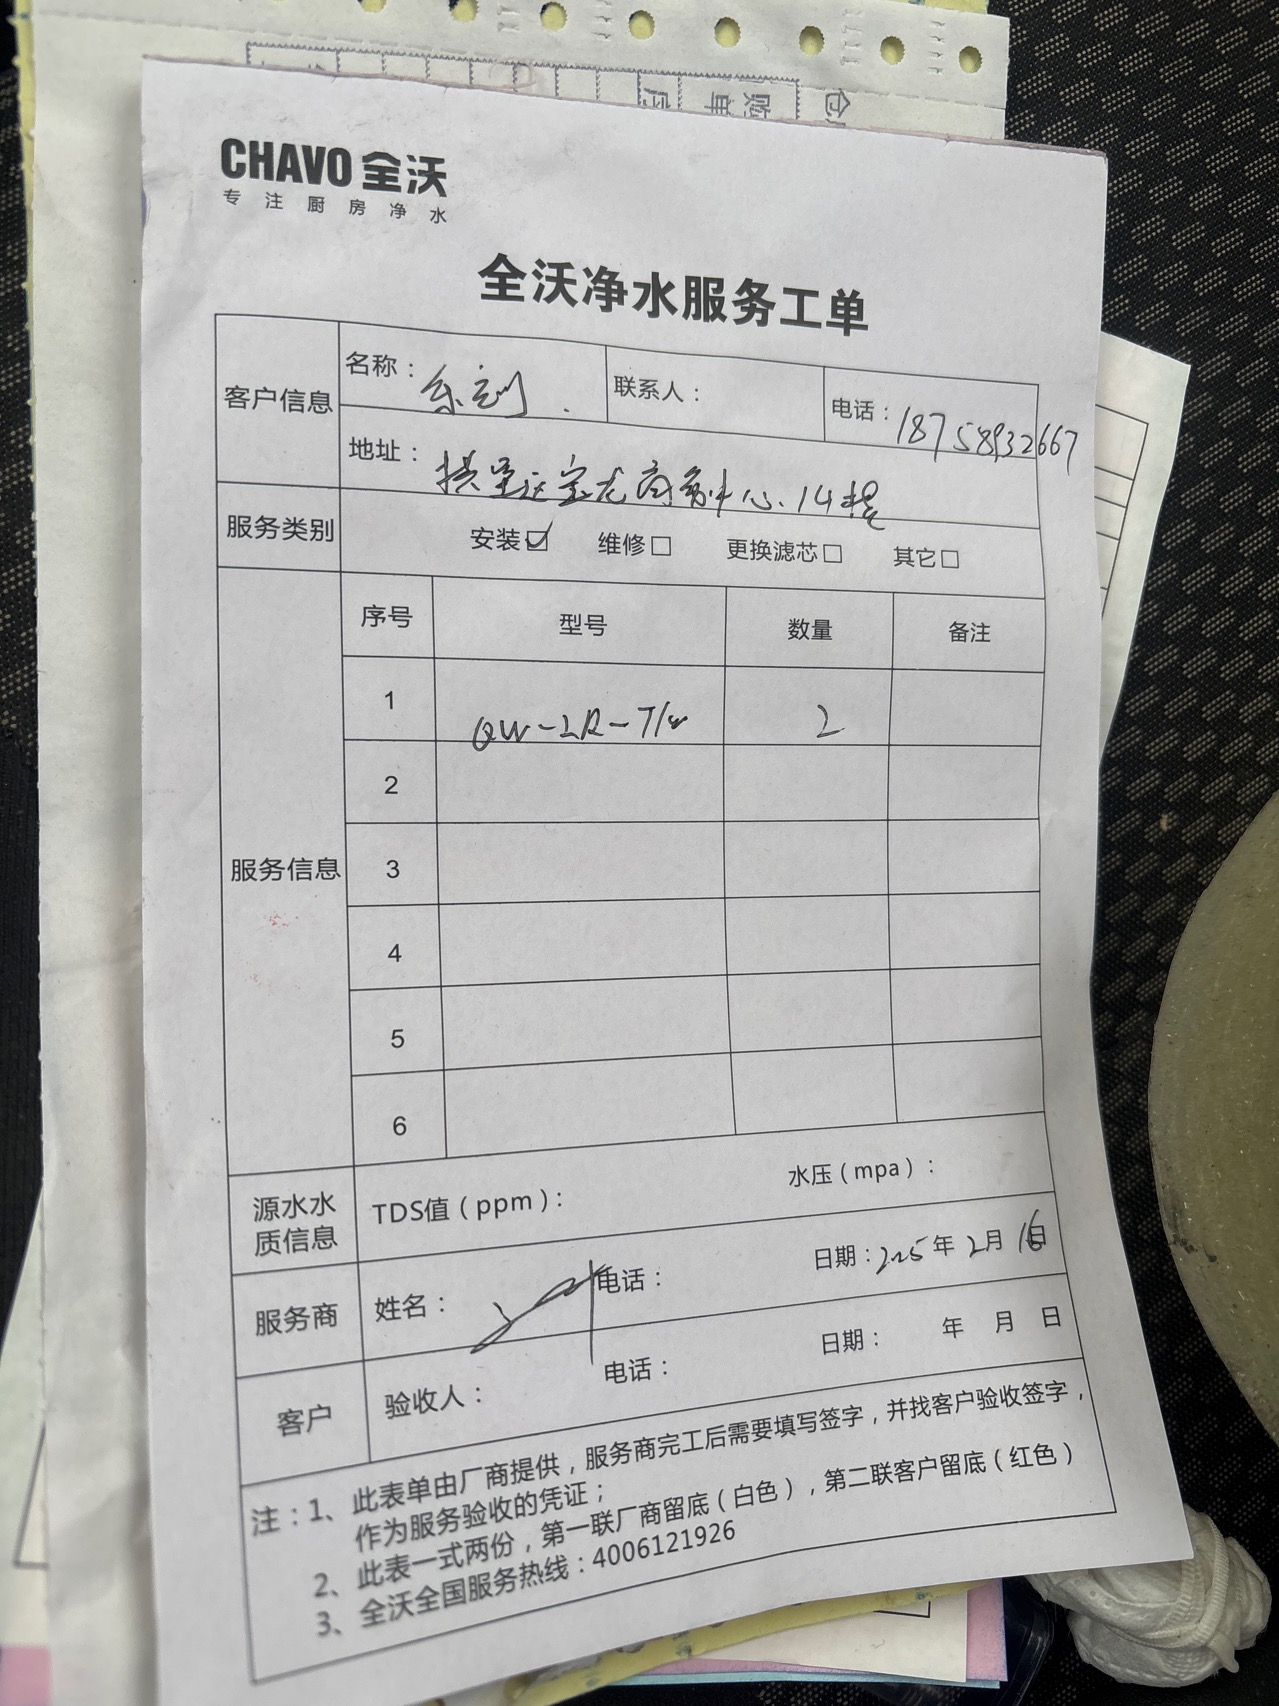 CHAVO 全沃
专注厨房净水
全沃净水服务工单
客户信息
名称：
联系人：
电话：18758932667
地址：拱墅区宝龙商务中心.14楼
服务类别
安装☑ 维修□ 更换滤芯□ 其它□
服务信息
序号 型号 数量 备注
1 QW-2R-T/W 2
2
3
4
5
6
源水水质信息
TDS值（ppm）： 水压（mpa）：
服务商
姓名： 电话： 日期：2025年2月16日
客户
验收人： 电话： 日期： 年 月 日
注：1、此表单由厂商提供，服务商完工后需要填写签字，并找客户验收签字，
作为服务验收的凭证；
2、此表一式两份，第一联厂商留底（白色），第二联客户留底（红色）
3、全沃全国服务热线：4006121926